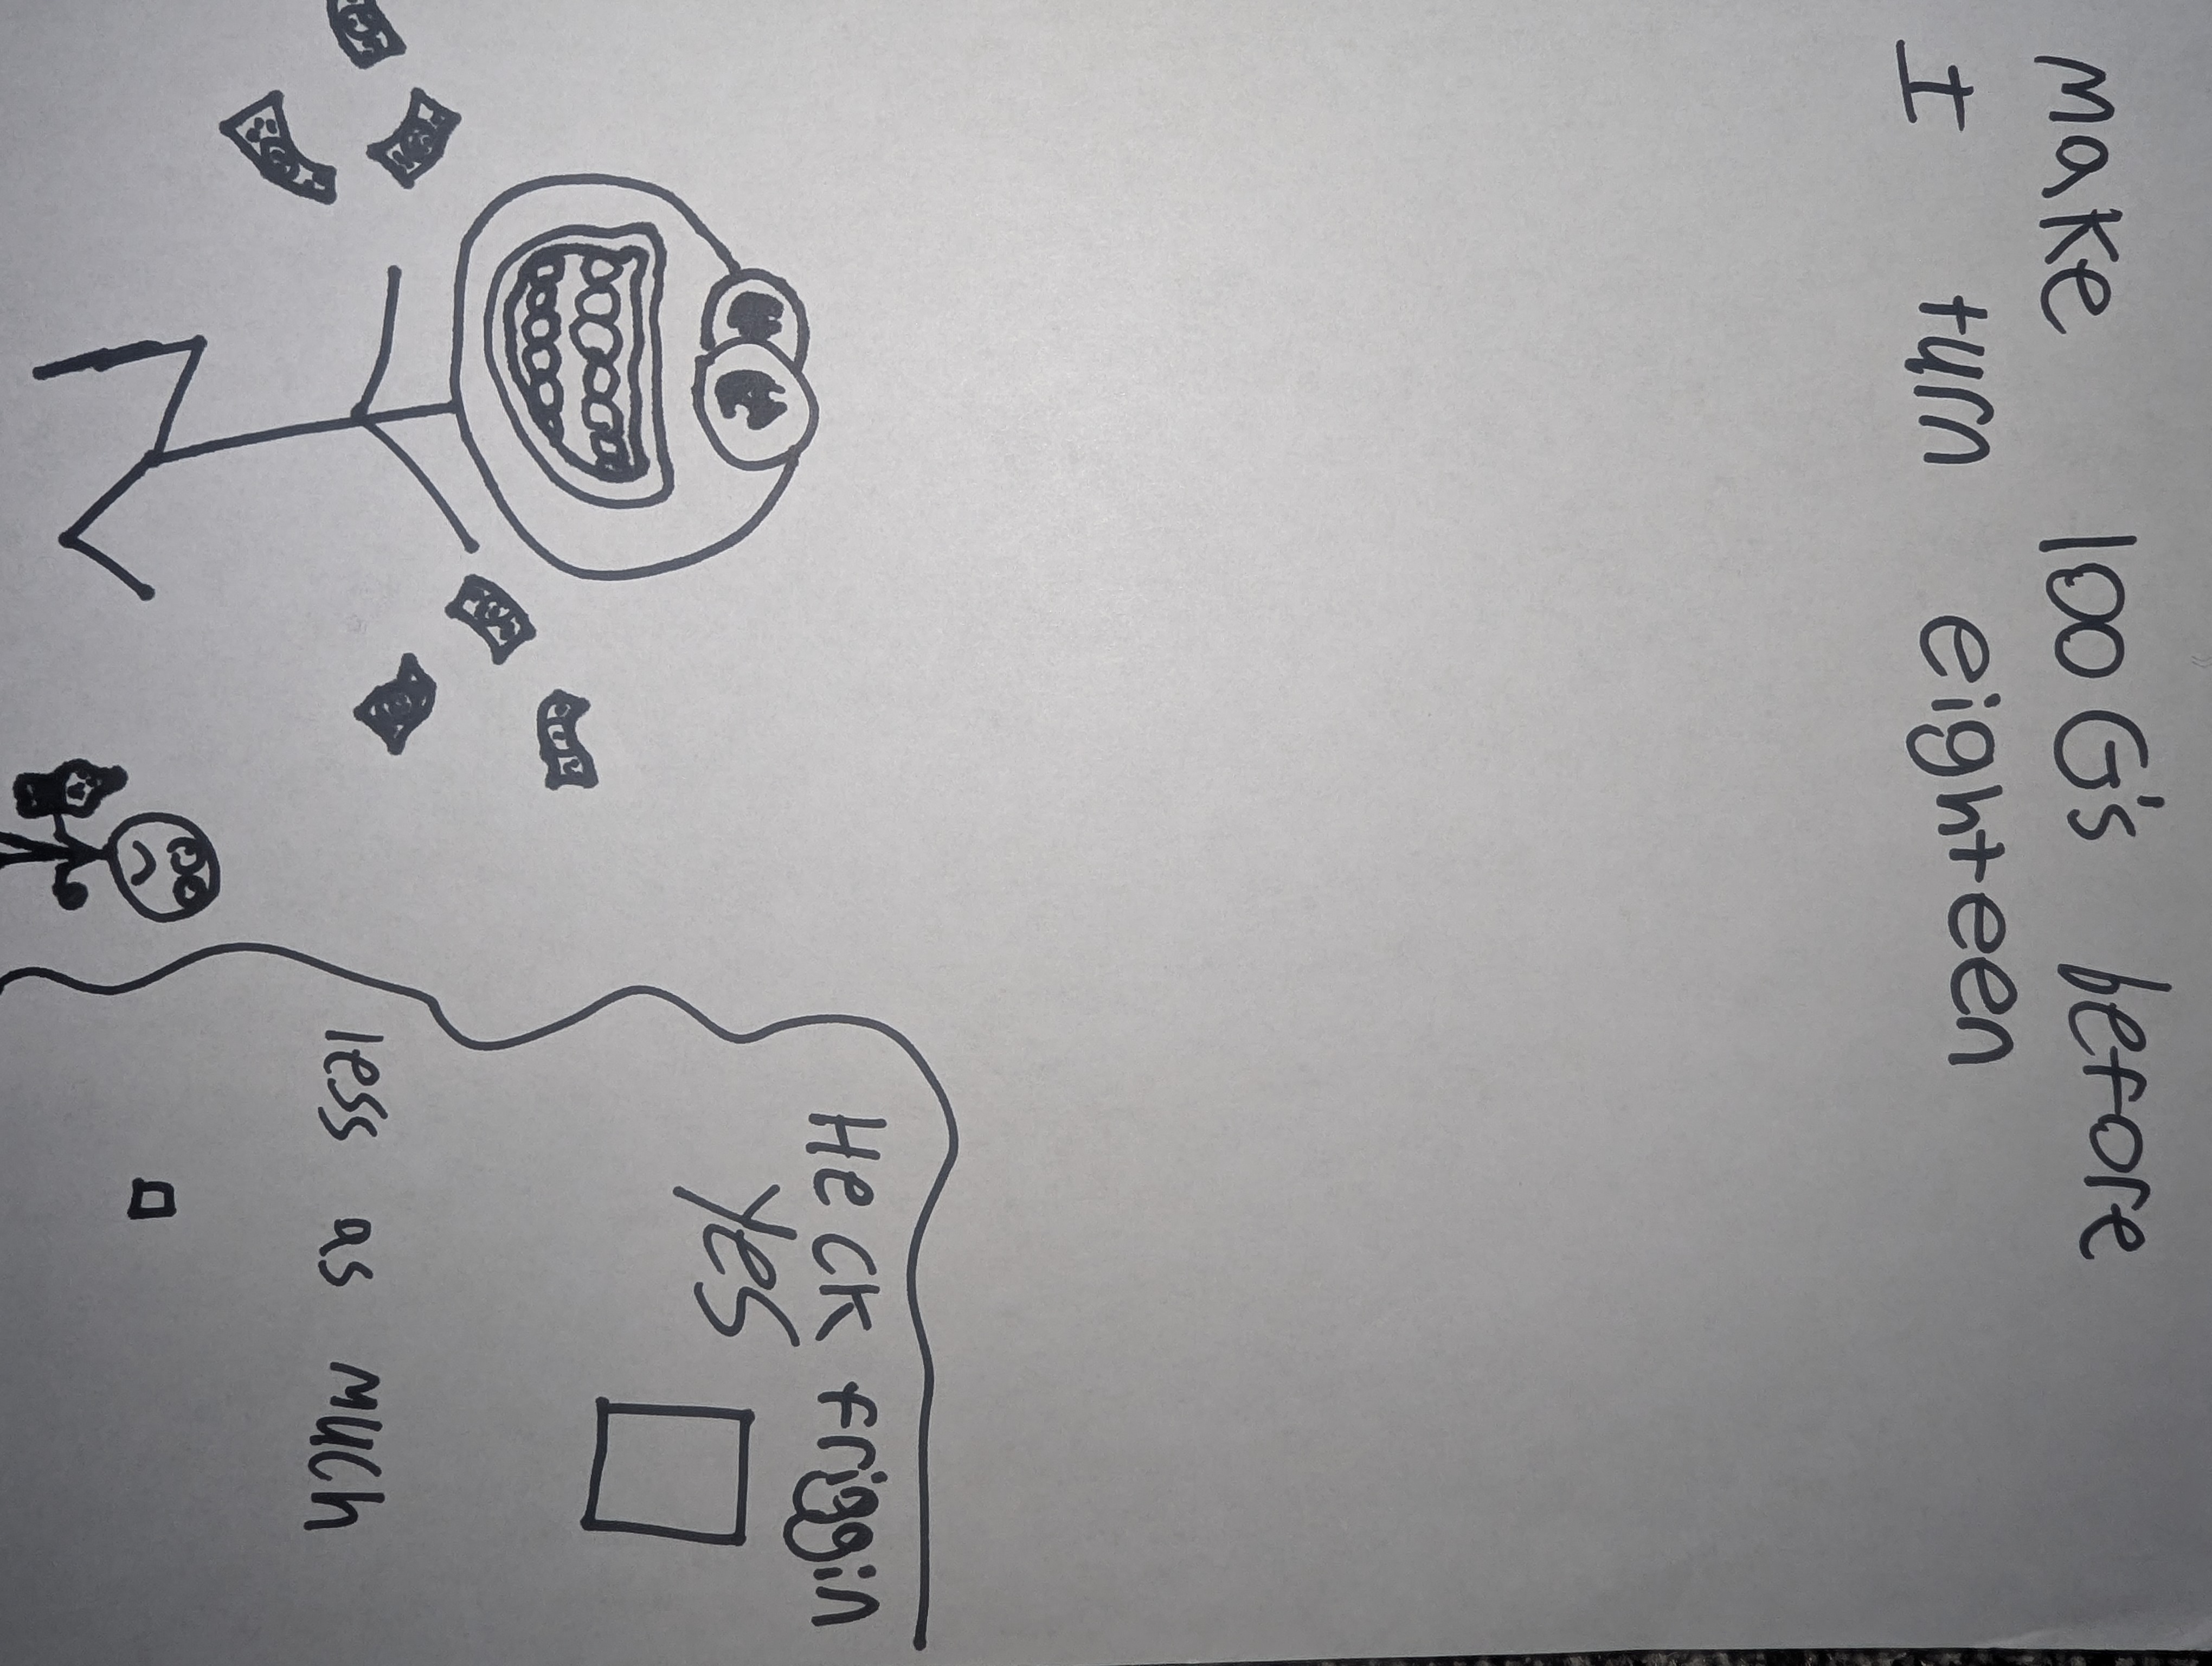 make 100 G's before
I turn eighteen
Heck friggin
yes
less as much